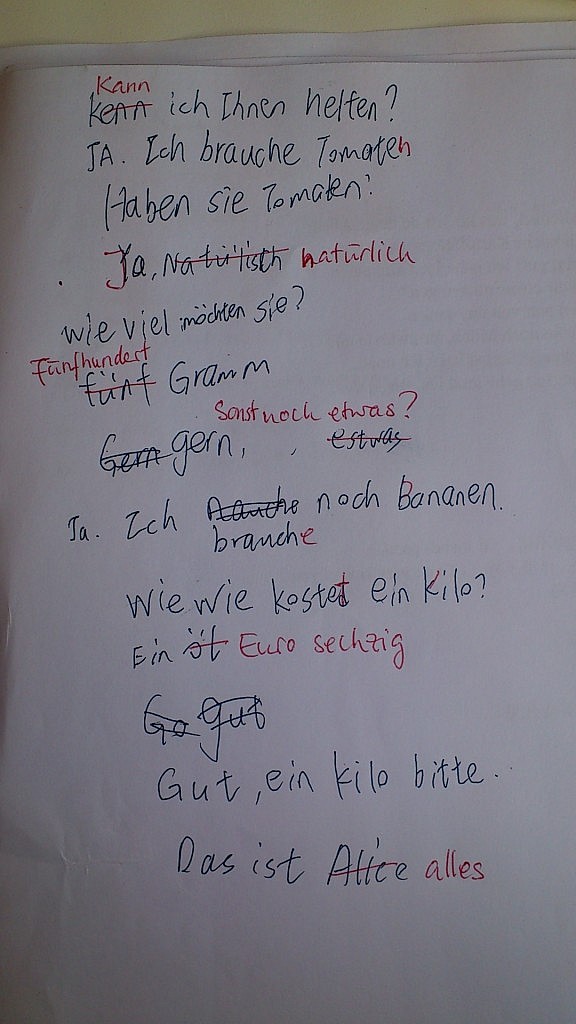 Kann
kenn ich Ihnen helfen?
JA. Ich brauche Tomaten
Haben sie Tomaten?
Ja, Natülisch natürlich
wie viel möchten sie?
Fünfhundert
fünf Gramm
Sonst noch etwas?
Gern gern, , estwas
Ja. Ich noch Bananen.
brauche
Wie wie kostet ein Kilo?
Ein öt Euro sechzig
Go gut
Gut, ein kilo bitte.
Das ist Alice alles